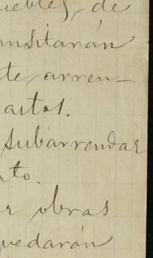 uebles, de
nsitarán
te arren-
astos.
subarrendar
to.
r obras
uedarán